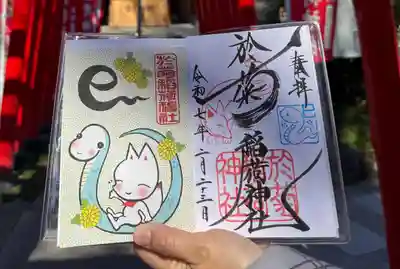 奉拝
於菊
稲荷神社
令和七年二月二十三日
於菊
神社
於菊稲荷神社